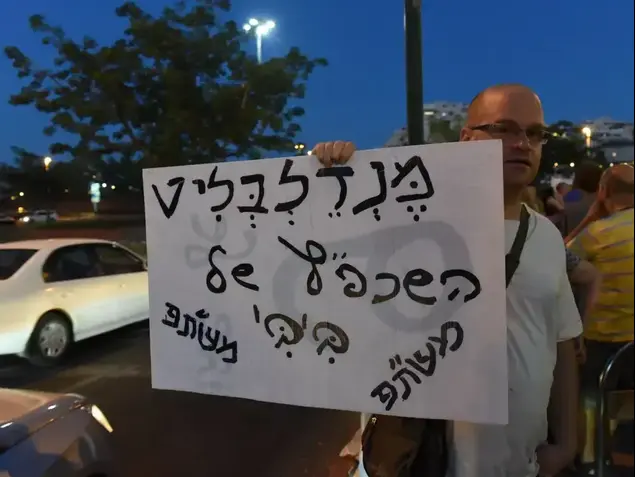 מֶּנְדֵלִבְּלִיט
השכפ״ץ של
בִּיבִּי
משת״פ
משת״פ